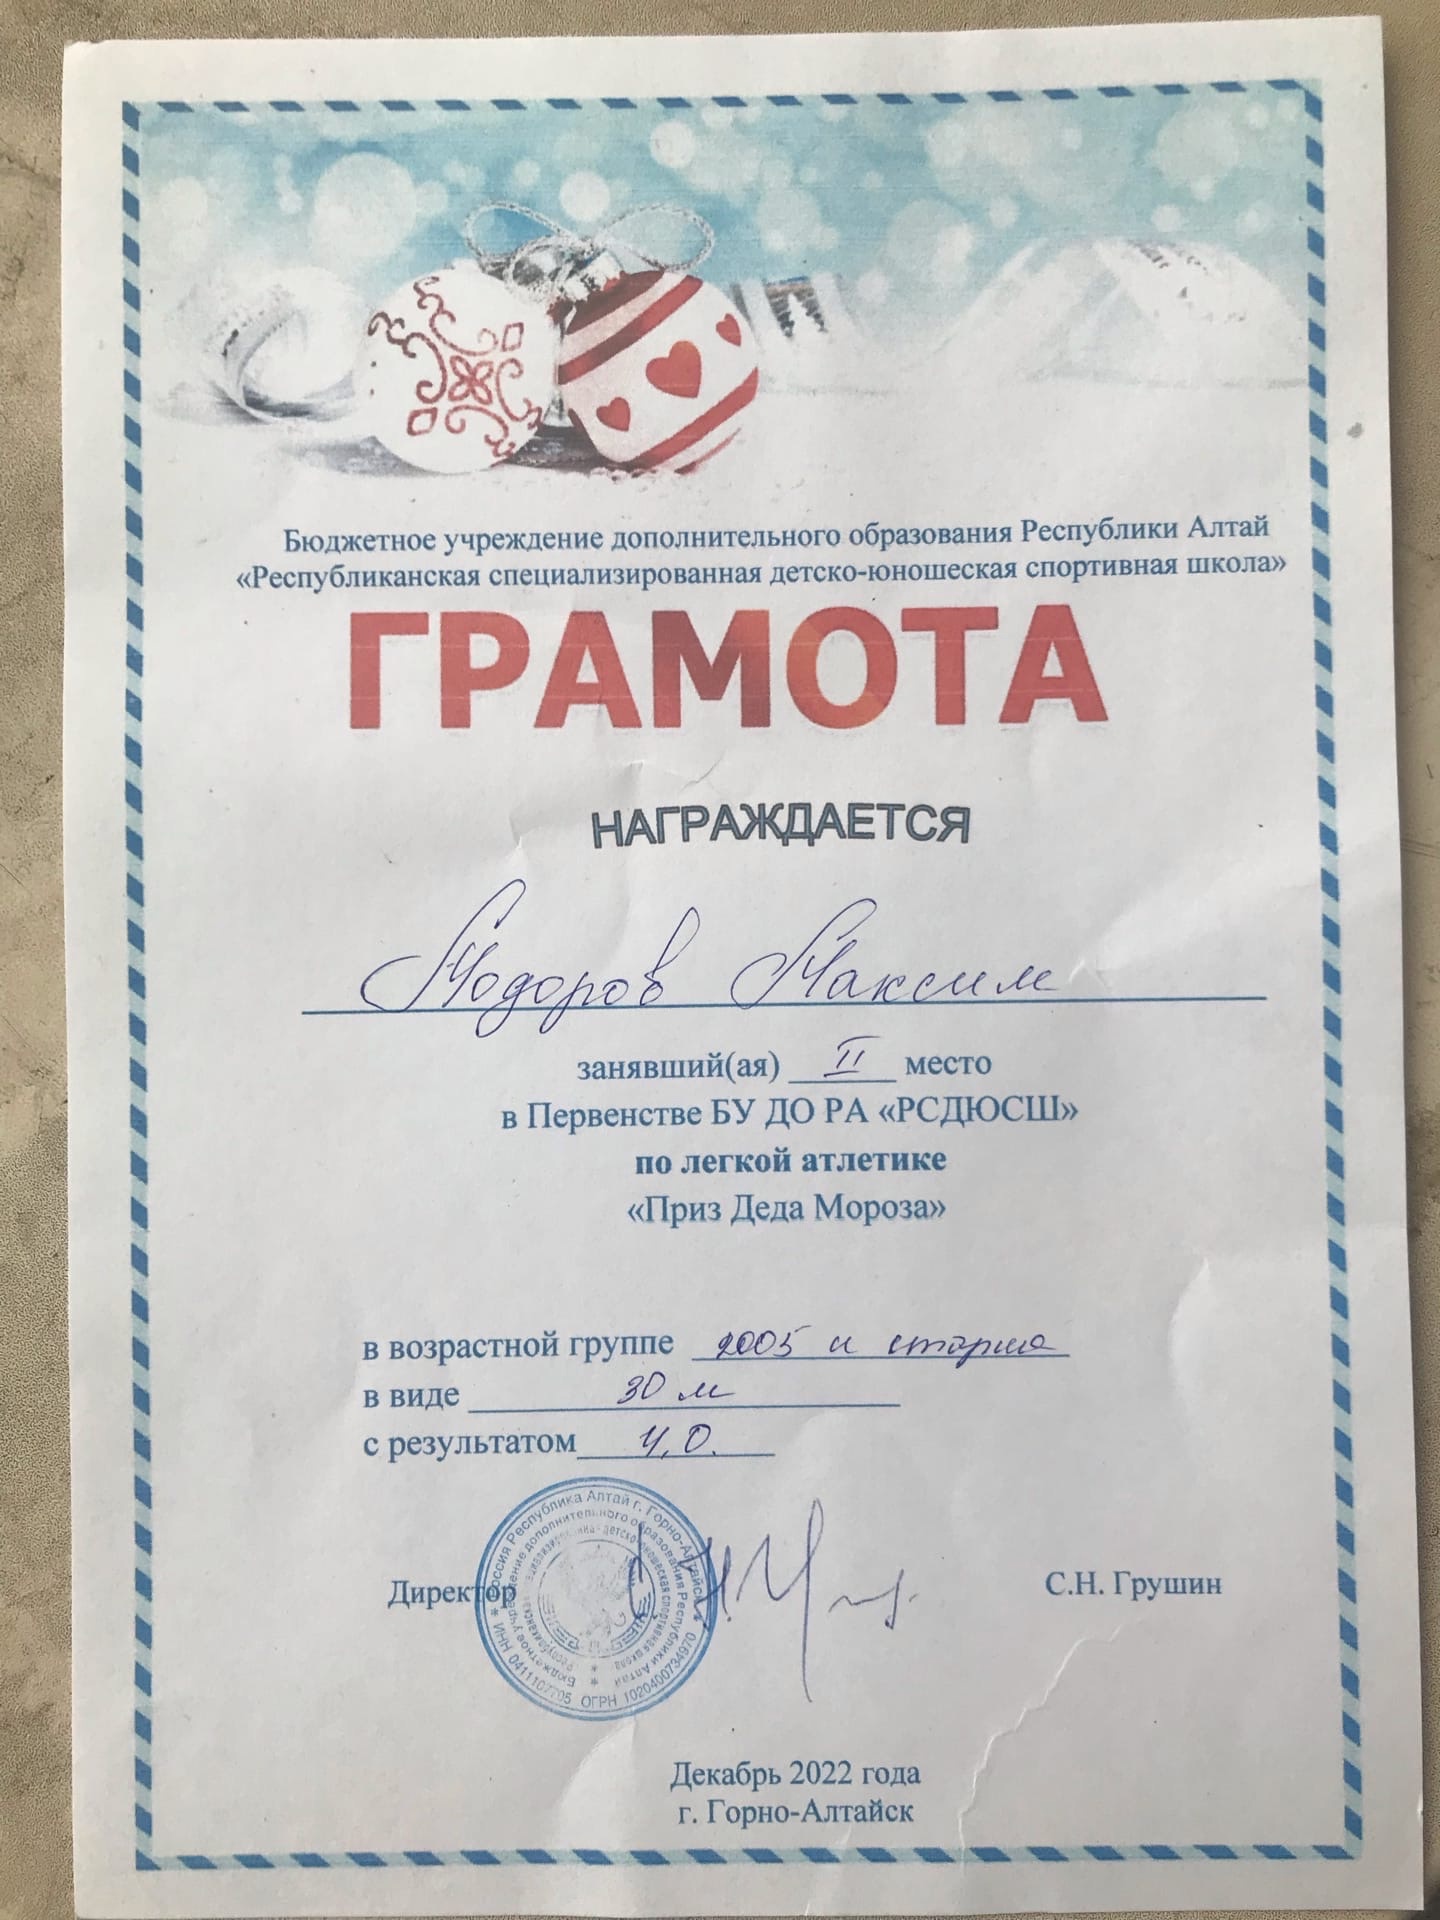 Бюджетное учреждение дополнительного образования Республики Алтай
«Республиканская специализированная детско-юношеская спортивная школа»
ГРАМОТА
НАГРАЖДАЕТСЯ
Модоров Максим
занявший(ая) II место
в Первенстве БУ ДО РА «РСДЮСШ»
по легкой атлетике
«Приз Деда Мороза»
в возрастной группе 2005 и старше
в виде 30 м
с результатом 4,0.
Директор С.Н. Грушин
Россия Республика Алтай г. Горно-Алтайск * ИНН 0411107705 ОГРН 1020400734970 *
Бюджетное учреждение дополнительного образования Республики Алтай *
Республиканская специализированная детско-юношеская спортивная школа
Декабрь 2022 года
г. Горно-Алтайск